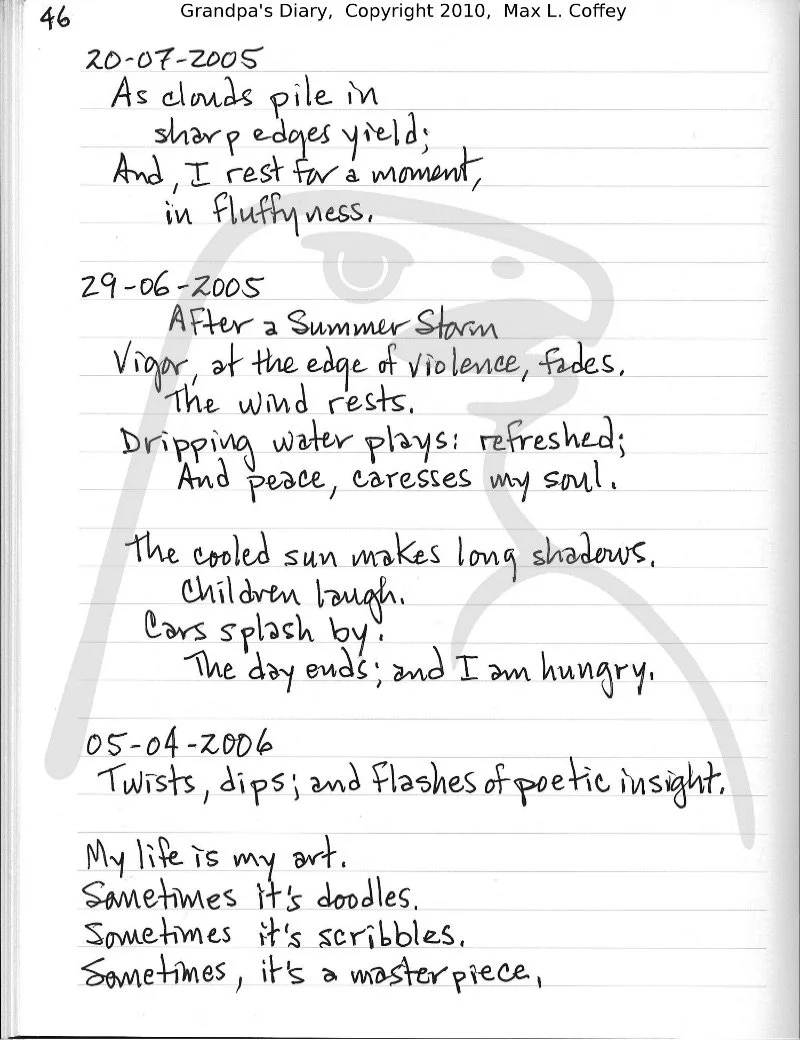 46
Grandpa's Diary, Copyright 2010, Max L. Coffey
20-07-2005
As clouds pile in
sharp edges yield;
And, I rest for a moment,
in fluffyness.
29-06-2005
After a Summer Storm
Vigor, at the edge of violence, fades.
The wind rests.
Dripping water plays: refreshed;
And peace, caresses my soul.
The cooled sun makes long shadows.
Children laugh.
Cars splash by.
The day ends; and I am hungry.
05-04-2006
Twists, dips; and flashes of poetic insight.
My life is my art.
Sometimes it's doodles.
Sometimes it's scribbles.
Sometimes, it's a masterpiece,